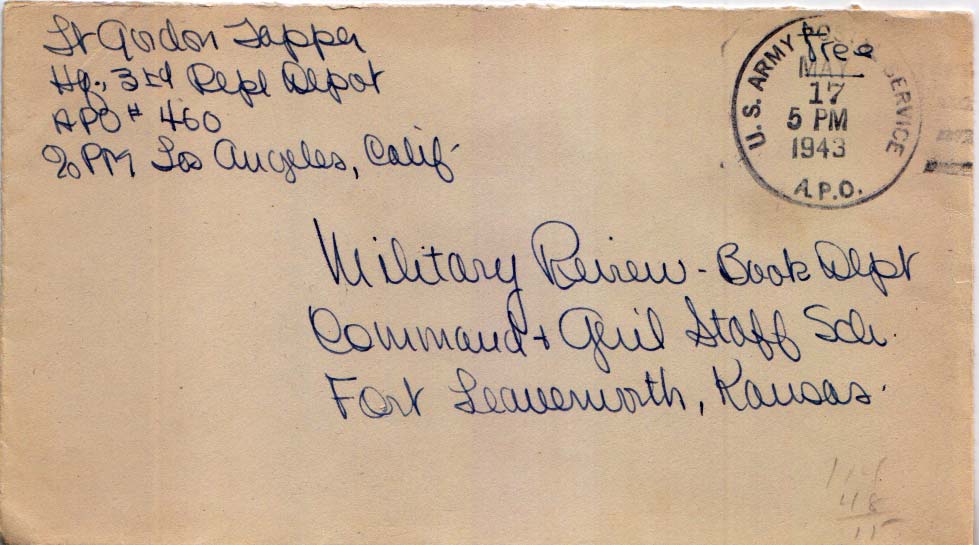 Lt Gordon Tapper
Hq., 3rd Repl Depot
APO # 460
℅ PM Los Angeles, Calif.
free
U. S. ARMY POSTAL SERVICE
MAY
17
5 PM
1943
A.P.O.
Military Review - Book Dept
Command + Gen'l Staff Sch.
Fort Leavenworth, Kansas.
48